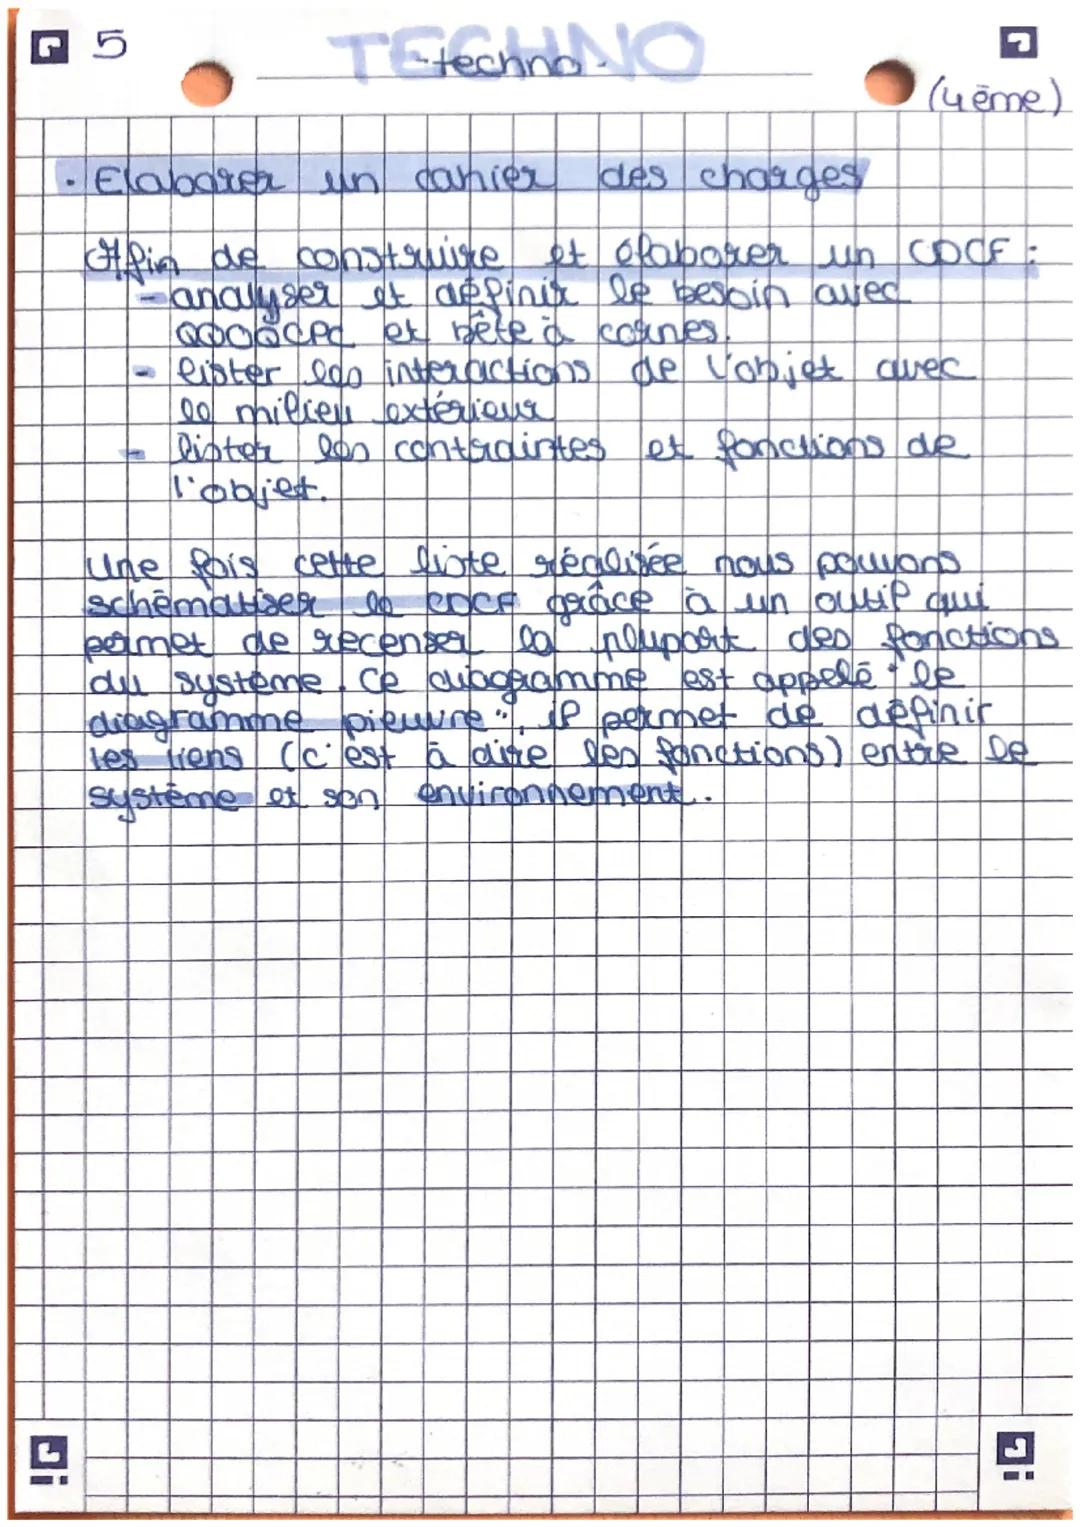 5
TECHNO
-techno-
(4ème)
• Elaborer un cahier des charges
Afin de construire et élaborer un CDCF :
- analyser et définir le besoin avec
QQOQCPC et bête à cornes.
- lister les interactions de l'objet avec
le milieu extérieur
- lister les contraintes et fonctions de
l'objet.
Une fois cette liste réalisée nous pouvons
schématiser le CDCF grâce à un outil qui
permet de recenser la plupart des fonctions
du système. Ce diagramme est appelé "le
diagramme pieuvre", il permet de définir
les liens (c'est à dire les fonctions) entre le
système et son environnement.